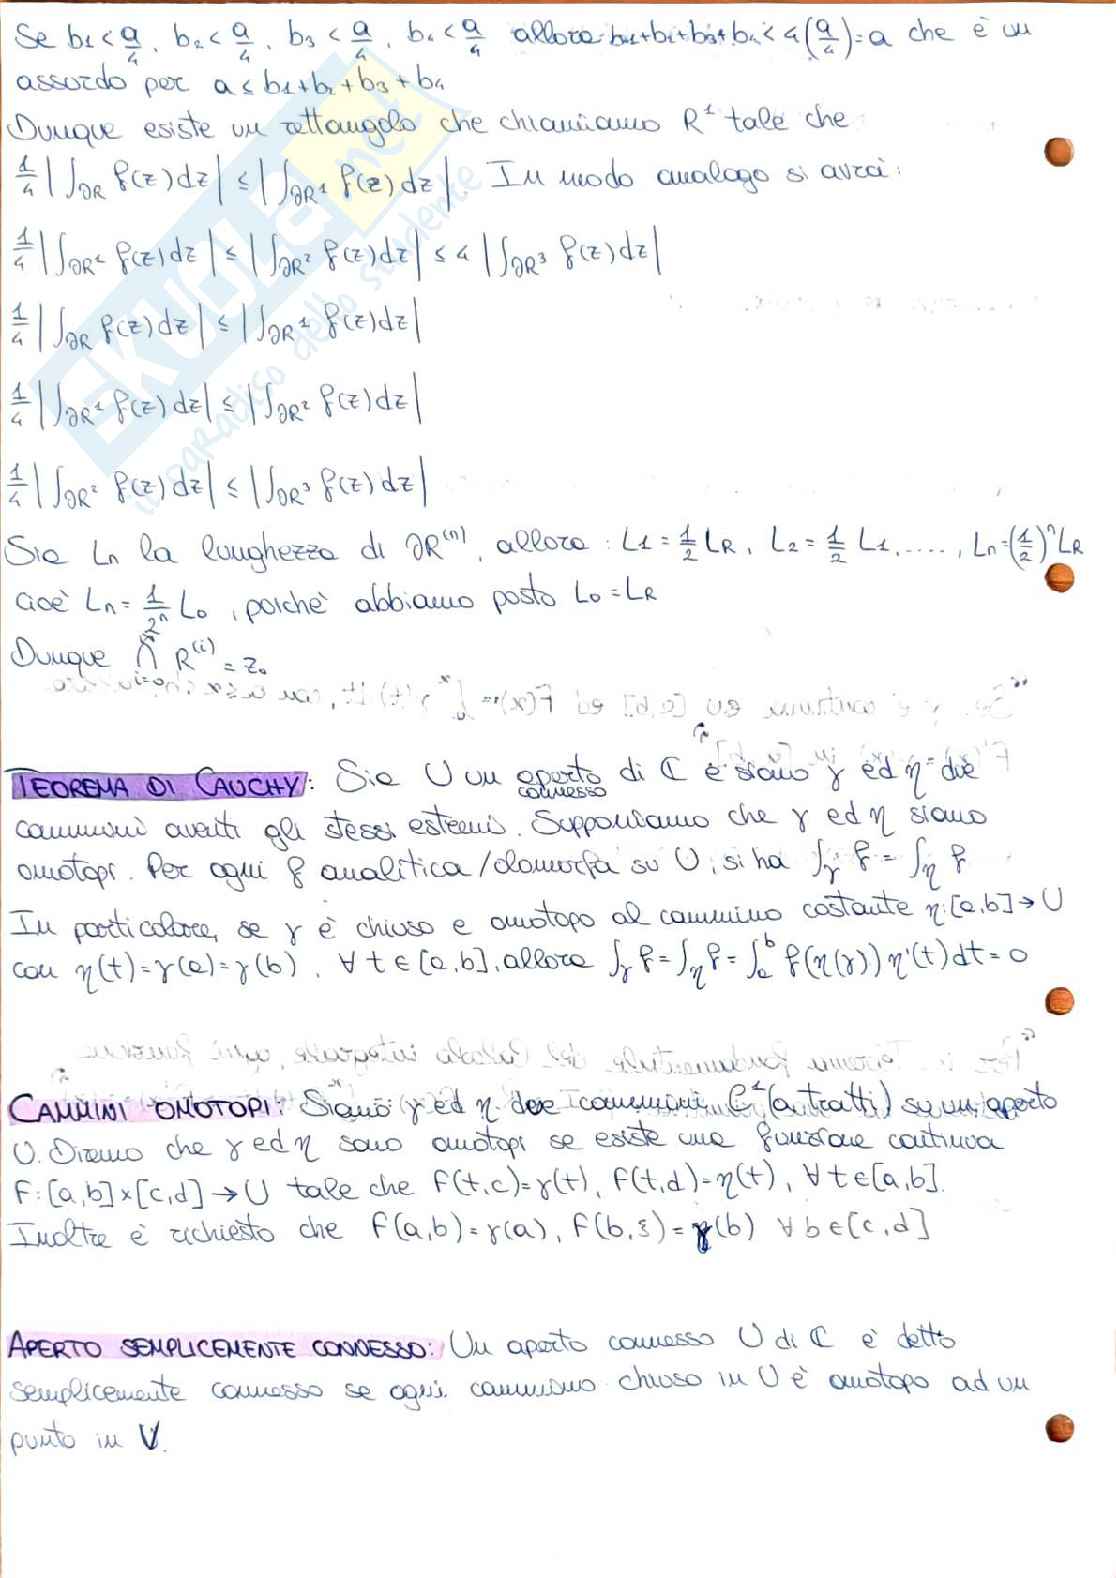 Se b₁ < a/4, b₂ < a/4, b₃ < a/4, b₄ < a/4 allora b₁+b₂+b₃+b₄ < 4(a/4) = a che è un
assurdo per a ≤ b₁+b₂+b₃+b₄
Dunque esiste un rettangolo che chiamiamo R¹ tale che
1/4 |∫∂R f(z)dz| ≤ |∫∂R¹ f(z)dz|. In modo analogo si avrà:
1/4 |∫∂R¹ f(z)dz| ≤ |∫∂R² f(z)dz| ≤ 4 |∫∂R³ f(z)dz|
1/4 |∫∂R f(z)dz| ≤ |∫∂R¹ f(z)dz|
1/4 |∫∂R¹ f(z)dz| ≤ |∫∂R² f(z)dz|
1/4 |∫∂R² f(z)dz| ≤ |∫∂R³ f(z)dz|
Sia Ln la lunghezza di ∂R⁽ⁿ⁾, allora: L1 = 1/2 LR, L2 = 1/2 L1, ...., Ln = (1/2)ⁿ LR
cioè Ln = 1/2ⁿ L₀, poichè abbiamo posto L₀ = LR
Dunque ∩ i=0 R⁽ⁱ⁾ = z₀
TEOREMA DI CAUCHY: Sia U un aperto connesso di ℂ e siano γ ed η due
cammini aventi gli stessi estremi. Supponiamo che γ ed η siano
omotopi. Per ogni f analitica/olomorfa su U, si ha ∫γ f = ∫η f
In particolare, se γ è chiuso e omotopo al cammino costante η: [a,b] → U
con η(t) = γ(a) = γ(b), ∀ t ∈ [a,b], allora ∫γ f = ∫η f = ∫ₐᵇ f(η(γ)) η'(t)dt = 0
CAMMINI OMOTOPI: Siano γ ed η due cammini C¹ (a tratti) su un aperto
U. Diremo che γ ed η sono omotopi se esiste una funzione continua
F: [a,b] × [c,d] → U tale che F(t,c) = γ(t), F(t,d) = η(t), ∀ t ∈ [a,b].
Inoltre è richiesto che F(a,b) = γ(a), F(b,s) = γ(b) ∀ b ∈ [c,d]
APERTO SEMPLICEMENTE CONNESSO: Un aperto connesso U di ℂ è detto
semplicemente connesso se ogni cammino chiuso in U è omotopo ad un
punto in U.
SKUOLA.net
il paradiso dello studente